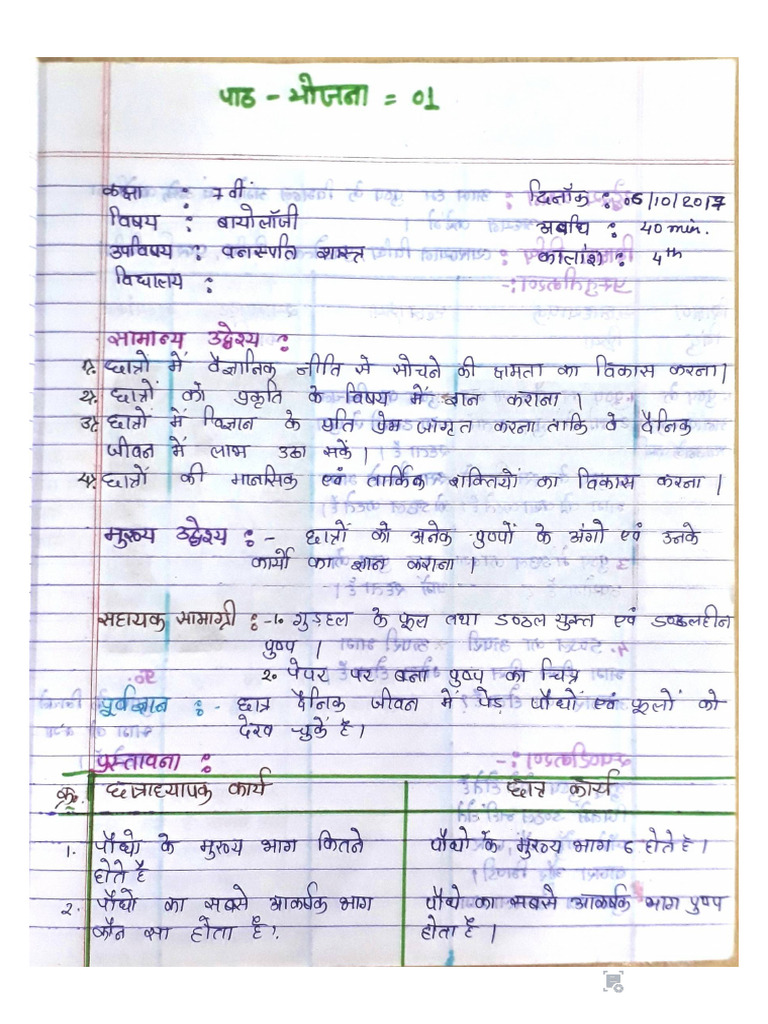 पाठ - योजना = 01
कक्षा : 7 वीं दिनाँक : 05/10/2017
विषय : बायोलॉजी अवधि : 40 min.
उपविषय : वनस्पति शास्त्र कालांश : 4th
विद्यालय :
सामान्य उद्देश्य :
1. छात्रों में वैज्ञानिक नीति से सोचने की क्षमता का विकास करना।
2. छात्रों को प्रकृति के विषय में ज्ञान कराना।
3. छात्रों में विज्ञान के प्रति प्रेम जागृत करना ताकि वे दैनिक
जीवन में लाभ उठा सकें।
4. छात्रों की मानसिक एवं तार्किक शक्तियों का विकास करना।
मुख्य उद्देश्य :- छात्रों को अनेक पुष्पों के अंगो एवं उनके
कार्यो का ज्ञान कराना।
सहायक सामाग्री :- 1. गुड़हल के फूल तथा डण्ठल युक्त एवं डण्ठलहीन
पुष्प।
2. पेपर पर बना पुष्प का चित्र
पूर्वज्ञान :- छात्र दैनिक जीवन में पेड़ पौधों एवं फूलों को
देख चुकें है।
प्रस्तावना :
क्र. छात्राध्यापक कार्य छात्र कार्य
1. पौधो के मुख्य भाग कितने पौधो के मुख्य भाग 6 होते है।
होते है
2. पौधो का सबसे आकर्षक भाग पौधो का सबसे आकर्षक भाग पुष्प
कौन सा होता है? होता है।